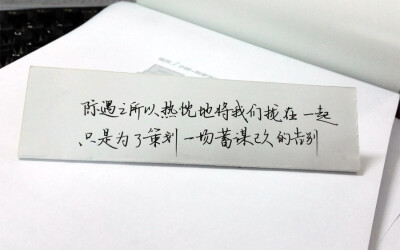 际遇之所以热忱地将我们拢在一起
只是为了策划一场蓄谋已久的告别